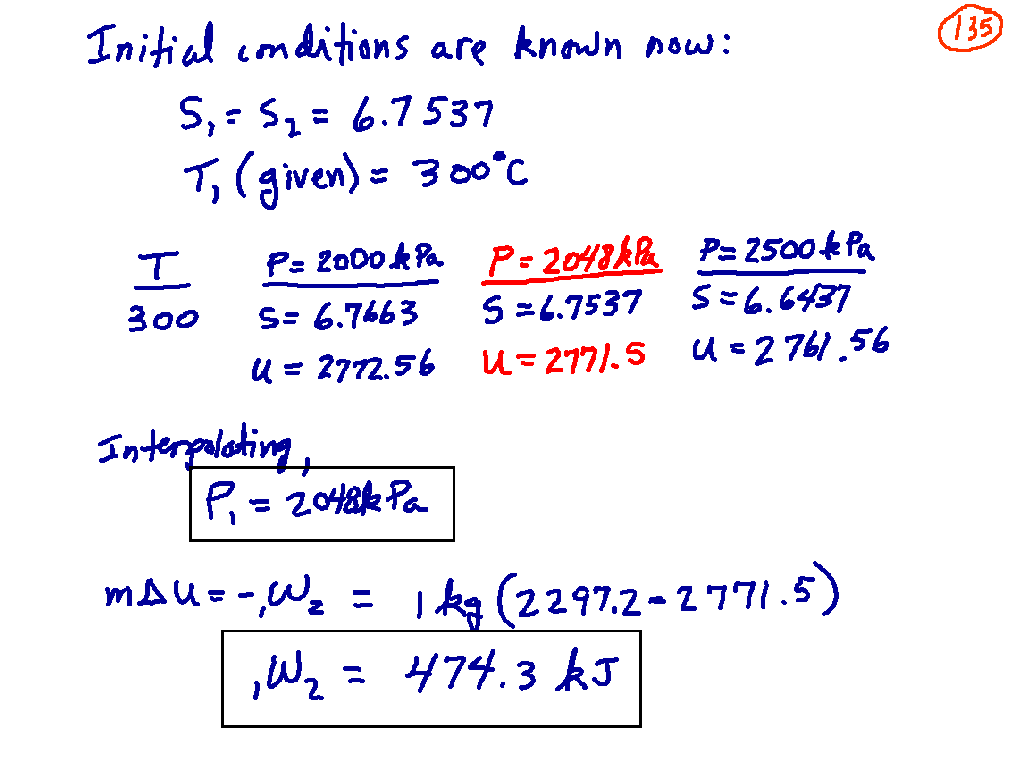 135
Initial conditions are known now:
S₁ = S₂ = 6.7537
T₁ (given) = 300°C
T P = 2000 kPa P = 2048 kPa P = 2500 kPa
300 S = 6.7663 S = 6.7537 S = 6.6437
u = 2772.56 u = 2771.5 u = 2761.56
Interpolating,
P₁ = 2048 kPa
mΔu = -₁W₂ = 1 kg (2297.2 - 2771.5)
₁W₂ = 474.3 kJ